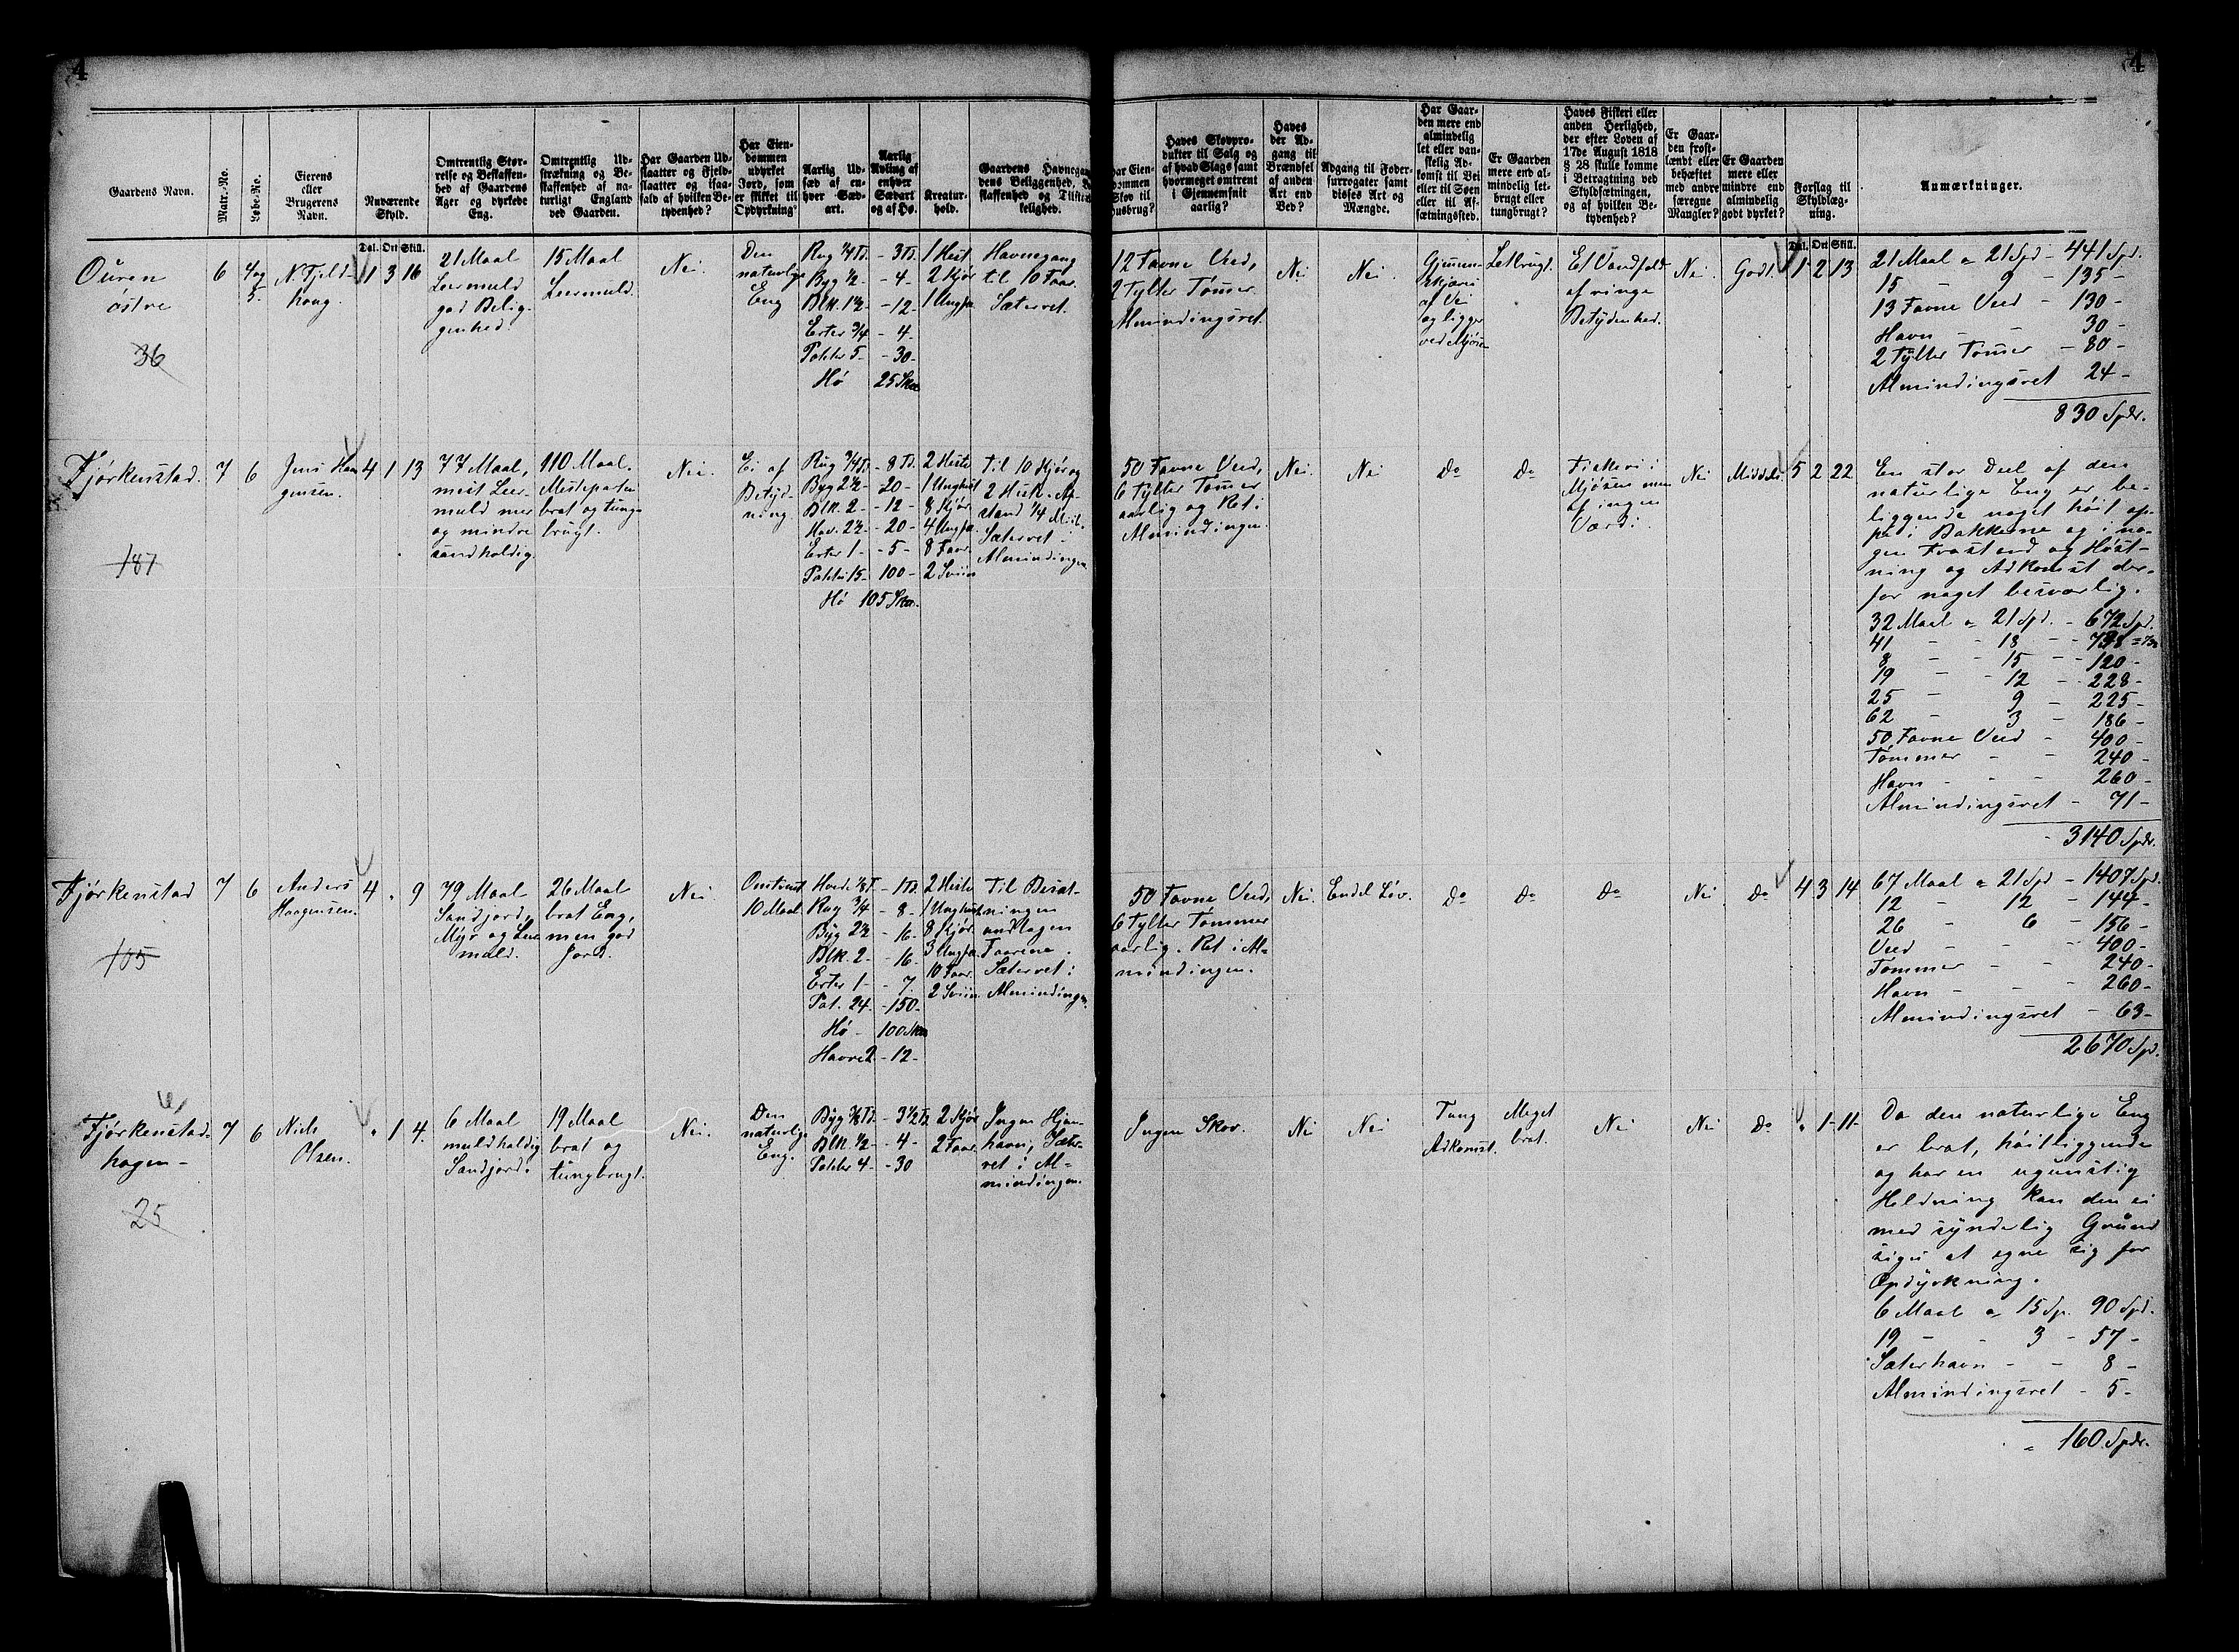 4
4
Gaardens Navn.
Matr.-No.
Løbe-No.
Eierens
eller
Brugerens
Navn.
Nuværende
Skyld.
Dal. Ort Skill.
Omtrentlig Stør-
relse og Beskaffen-
hed af Gaardens
Ager og dyrkede
Eng.
Omtrentlig Ud-
strækning og Be-
skaffenhed af na-
turligt England
ved Gaarden.
Har Gaarden Ud-
slaatter og Fjeld-
slaatter og isaa-
fald af hvilken Be-
tydenhed?
Har Eien-
dommen
udyrket
Jord, som
er skikket til
Opdyrkning?
Aarlig Ud-
sæd af en-
hver Sæd-
art.
Aarlig
Avling af
enhver
Sædart
og af Hø.
Kreatur-
hold.
Gaardens Havnegang,
dens Beliggenhed, Be-
skaffenhed og Tilstræk-
kelighed.
Har Eien-
dommen
Skov til
Husbrug?
Haves Skovpro-
dukter til Salg og
af hvad Slags samt
hvormeget omtrent
i Gjennemsnit
aarlig?
Haves
der Ad-
gang til
Brændsel
af anden
Art end
Ved?
Adgang til Foder-
surrogater samt
disses Art og
Mængde.
Har Gaar-
den mere end
almindelig
let eller van-
skelig Ad-
komst til Vei
eller til Søen
eller til Af-
sætningssted.
Er Gaarden
mere end al-
mindelig let-
brugt eller
tungbrugt?
Haves Fiskeri eller
anden Herlighed,
der efter Loven af
17de August 1818
§ 28 skulle komme
i Betragtning ved
Skyldsætningen,
og af hvilken Be-
tydenhed?
Er Gaar-
den frost-
lændt eller
behæftet
med andre
særegne
Mangler?
Er Gaarden
mere eller
mindre end
almindelig
godt dyrket?
Forslag til
Skyldlæg-
ning.
Dal. Ort Skill.
Anmærkninger.
Ouren
østre
36
6
4 og
5
N. Fjeld-
haug.
1 3 16
21 Maal
Leermuld
god Belig-
genhed.
15 Maal
Leermuld.
Nei.
Den
naturlige
Eng
Rug ¼ Td. - 3 Td.
Byg ½ - 4 -
Blk. 1½ - 12 -
Erter ¾ - 4 -
Poteter 5 - 30 -
Hø 25 Skm
1 Hest
2 Kjør
1 Ungfæ
Havnegang
til 10 Faar.
Sæterret.
12 Favne Ved,
2 Tylter Tømer
Almindingsret.
Nei
Nei
Gjennem-
skjæres
af Vei
og ligger
ved Mjøsen
Letbrugt.
Et Vandfald
af ringe
Betydenhed.
Nei
Godt.
1 2 13
21 Maal a 21 Spd - 441 Spd.
15 - 9 - 135 -
13 Favne Ved - 130 -
Havn - 30 -
2 Tylter Tømer - 80 -
Almindingsret 24 -
830 Spdr.
Fjørkenstad.
187
7
6
Jens Haa-
gensen.
4 1 13
77 Maal,
mest Leer-
muld mer
og mindre
sandholdig.
110 Maal.
Mesteparten
brat og tung-
brugt.
Nei.
Ei af
Betyd-
ning.
Rug ¾ Td. - 8 Td.
Byg 2½ - 20 -
Blk. 2 - 12 -
Hav. 2½ - 20 -
Erter 1 - 5 -
Poteter 15 - 100 -
Hø 105 Skm.
2 Heste
1 Unghest
8 Kjør
4 Ungfæ.
8 Faar.
2 Sviin
Til 10 Kjør og
2 Hest. Af-
stand ¼ Miil.
Sæterret -
Almindingen
50 Favne Ved,
6 Tylter Tømer
aarlig og Ret i
Almindingen.
Nei.
Nei
Do
Do
Fiskeri i
Mjøsen men
af ingen
Værdi.
Nei
Middels.
5 2 22
En stor Deel af den
naturlige Eng er be-
liggende noget høit op-
pe i Bakkerne og i no-
gen Frastand og Høst-
ning og Adkomst der-
for noget besværlig.
32 Maal a 21 Spd. - 672 Spd.
41 - 18 - 738
8 - 15 - 120 -
19 - 12 - 228 -
25 - 9 - 225 -
62 - 3 - 186 -
50 Favne Ved - 400 -
Tømmer - 240 -
Havn - 260 -
Almindingsret - 71 -
3140 Spdr.
Fjørkenstad
105
7
6
Anders
Haagensen.
4 " 9
79 Maal
Sandjord,
Myr og Leer-
muld.
26 Maal
brat Eng,
men god
Jord.
Nei
Omtrent
10 Maal
Hvede ⅛ T. - 1 Td.
Rug ¾ - 8 -
Byg 2½ - 16 -
Blk. 2 - 16 -
Erter 1 - 7
Pot. 24 - 150 -
Hø - 100 Skm
Havre 2 - 12 -
2 Heste
1 Unghest
8 Kjør.
3 Ungfæ.
10 Faar.
2 Sviin
Til Besæt-
ningen
undtagen
Faarene.
Sæterret i
Almindingen.
50 Favne Ved,
6 Tylter Tømmer
aarlig. Ret i Al-
mindingen.
Nei.
Endel Løv.
Do
Do
Do
Nei
Do
4 3 14
67 Maal a 21 Spd - 1407 Spd.
12 - 12 - 144 -
26 - 6 - 156 -
Ved - 400 -
Tømmer - 240 -
Havn - 260 -
Almindingsret - 63 -
2670 Spd.
Fjørkenstad-
hagen -
25
7
6
Niels
Olsen.
" 1 4
6 Maal
muldholdig
Sandjord.
19 Maal
brat og
tungbrugt.
Nei.
Den
naturlige
Eng.
Byg ⅜ Td. - 3½ Td.
Blk. ½ - 4 -
Poteter 4 - 30
2 Kjør
2 Faar.
Ingen Hjem-
havn, Sæter-
ret i Al-
mindingen.
Ingen Skov.
Nei
Nei
Tung
Adkomst.
Meget
brat.
Nei
Nei
Do
" 1 11
Da den naturlige Eng
er brat, høitliggende
og har en ugunstig
Heldning kan den ei
med synderlig Grund
siges at egne sig for
Opdyrkning.
6 Maal a 15 Sp. 90 Spd.
19 - 3 - 57 -
Sæterhavn - 8 -
Almindingsret - 5 -
160 Spdr.